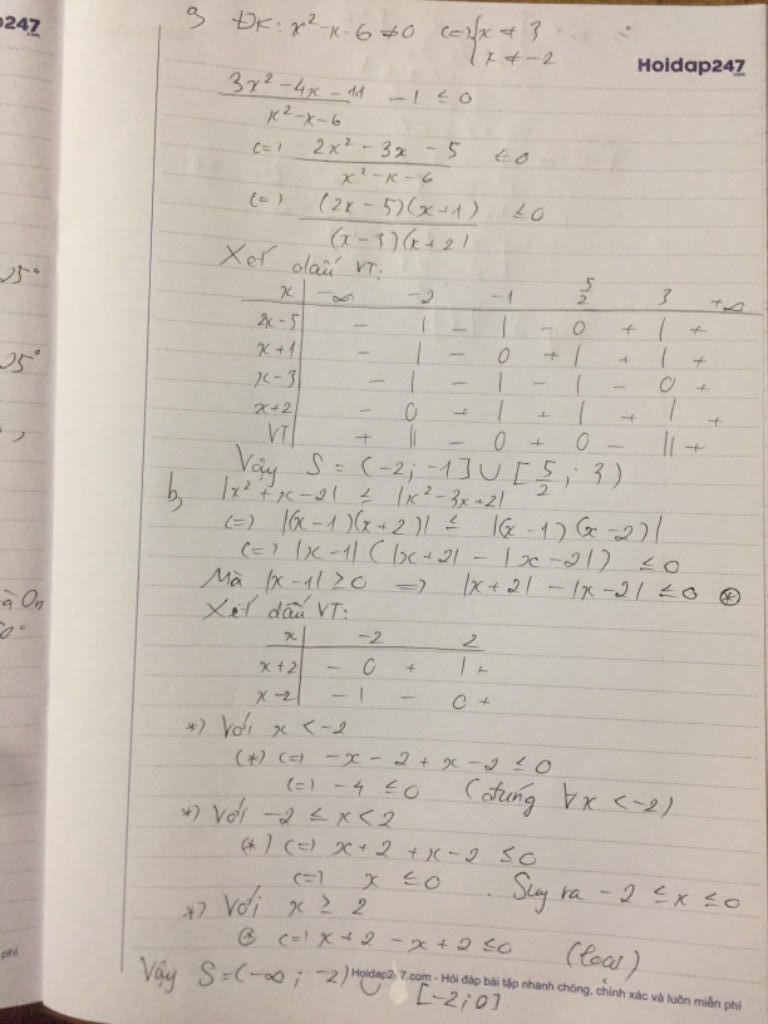 p247
.com
a, ĐK: x² - x - 6 ≠ 0 (=) { x ≠ 3
x ≠ -2
Hoidap247
.com
3x² - 4x - 11 / x² - x - 6 - 1 ≤ 0
(=) 2x² - 3x - 5 / x² - x - 6 ≤ 0
(=) (2x - 5)(x + 1) / (x - 3)(x + 2) ≤ 0
Xét dấu VT:
x | -∞ -2 -1 5/2 3 +∞
2x-5 | - | - | - 0 + | +
x+1 | - | - 0 + | + | +
x-3 | - | - | - | - 0 +
x+2 | - 0 + | + | + | +
VT | + || - 0 + 0 - || +
Vậy S = (-2; -1] ∪ [5/2; 3)
b, |x² + x - 2| ≤ |x² - 3x + 2|
(=) |(x - 1)(x + 2)| ≤ |(x - 1)(x - 2)|
(=) |x - 1| (|x + 2| - |x - 2|) ≤ 0
Mà |x - 1| ≥ 0 => |x + 2| - |x - 2| ≤ 0 (*)
Xét dấu VT:
x | -2 2
x+2 | - 0 + | +
x-2 | - | - 0 +
*) Với x < -2
(*) (=) -x - 2 + x - 2 ≤ 0
(=) -4 ≤ 0 (đúng ∀x < -2)
*) Với -2 ≤ x < 2
(*) (=) x + 2 + x - 2 ≤ 0
(=) x ≤ 0 . Suy ra -2 ≤ x ≤ 0
*) Với x ≥ 2
(*) (=) x + 2 - x + 2 ≤ 0 (loại)
Vậy S = (-∞; -2) ∪ [-2; 0]
Hoidap247.com - Hỏi đáp bài tập nhanh chóng, chính xác và luôn miễn phí
25°
25°
à On
0°
phí